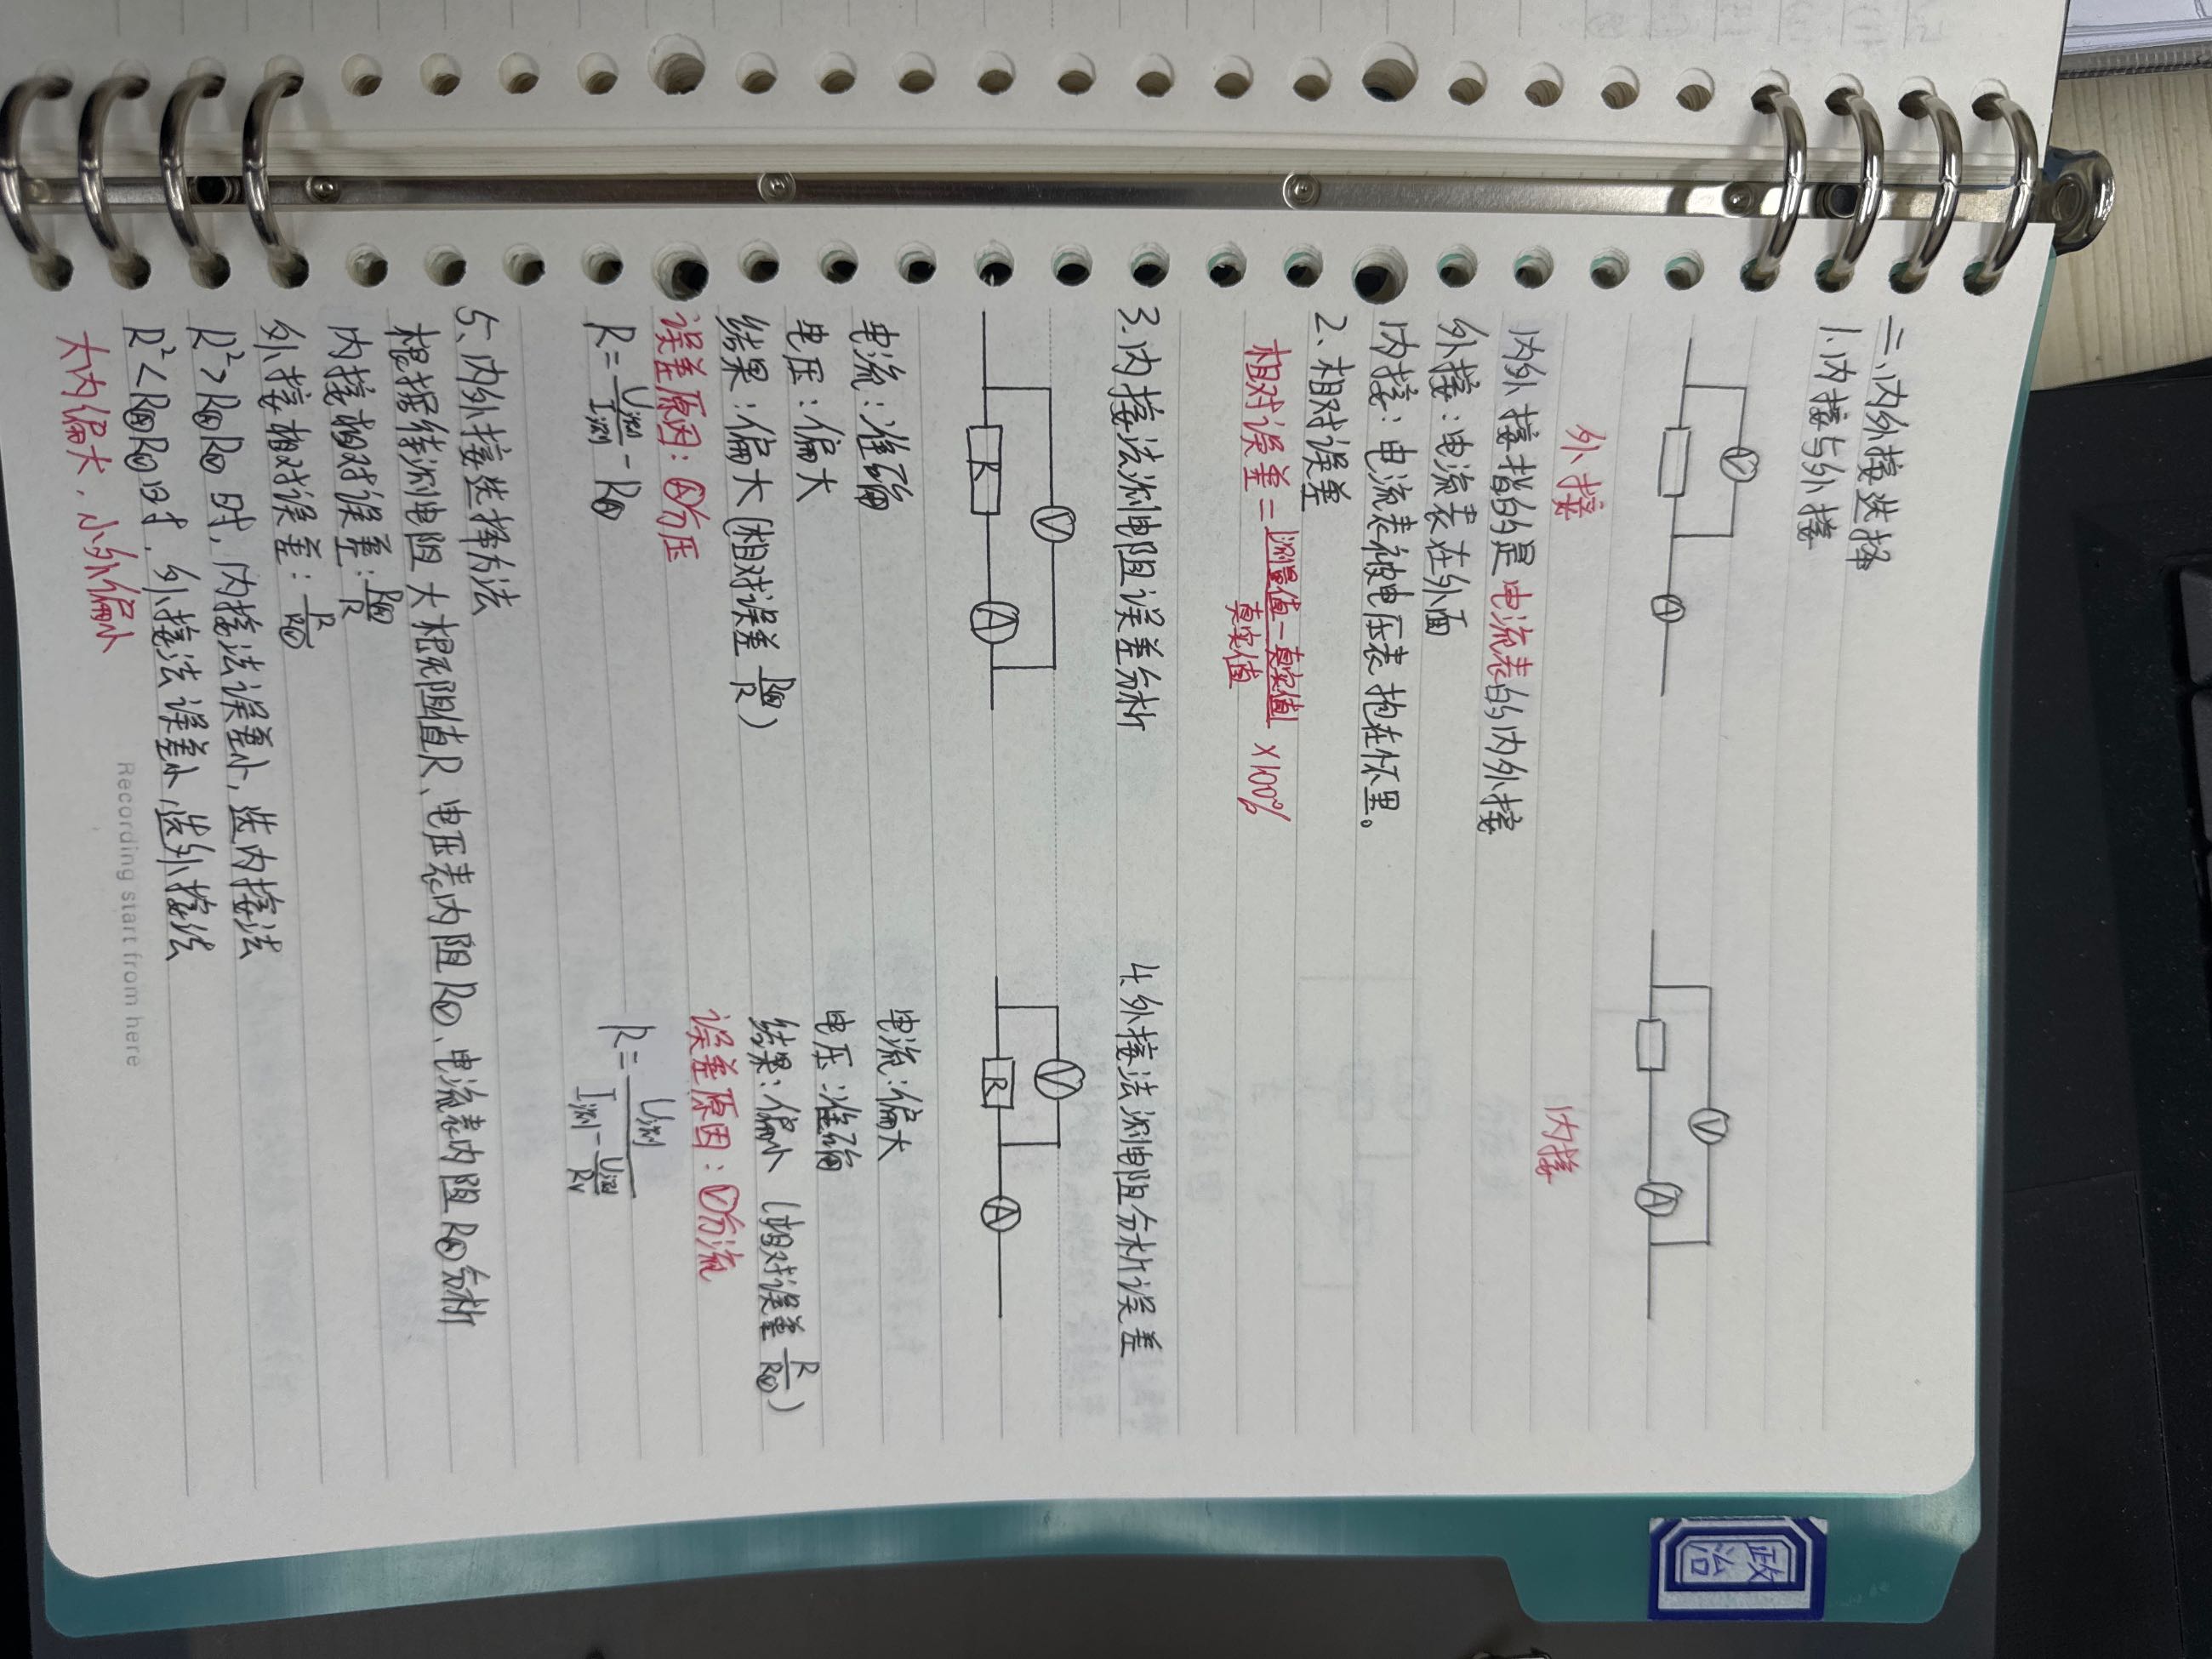 二.内外接选择
1.内接与外接
V
A
外接
V
A
内接
内外接指的是电流表的内外接
外接:电流表在外面
内接:电流表被电压表抱在怀里。
2.相对误差
相对误差=|测量值-真实值|/真实值 ×100%
3.内接法测电阻误差分析
V
R
A
电流:准确
电压:偏大
结果:偏大(相对误差 RⒶ/R)
误差原因:Ⓐ分压
R=U测/I测-RⒶ
4.外接法测电阻分析误差
V
R
A
电流:偏大
电压:准确
结果:偏小 (相对误差 R/RⓋ)
误差原因:Ⓥ分流
R=U测/(I测-U测/RV)
5.内外接选择方法
根据待测电阻大概阻值R、电压表内阻RⓋ、电流表内阻RⒶ分析
内接相对误差:RⒶ/R
外接相对误差:R/RⓋ
R²>RⒶRⓋ时,内接法误差小,选内接法
R²<RⒶRⓋ时,外接法误差小,选外接法
大内偏大,小外偏小
Recording start from here
政治